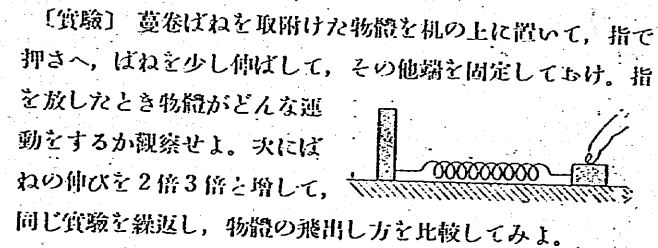 〔實驗〕 蔓卷ばねを取附けた物體を机の上に置いて，指で
押さへ，ばねを少し伸ばして，その他端を固定しておけ。指
を放したとき物體がどんな運
動をするか觀察せよ。次にば
ねの伸びを2倍3倍と增して，
同じ實驗を繰返し，物體の飛出し方を比較してみよ。